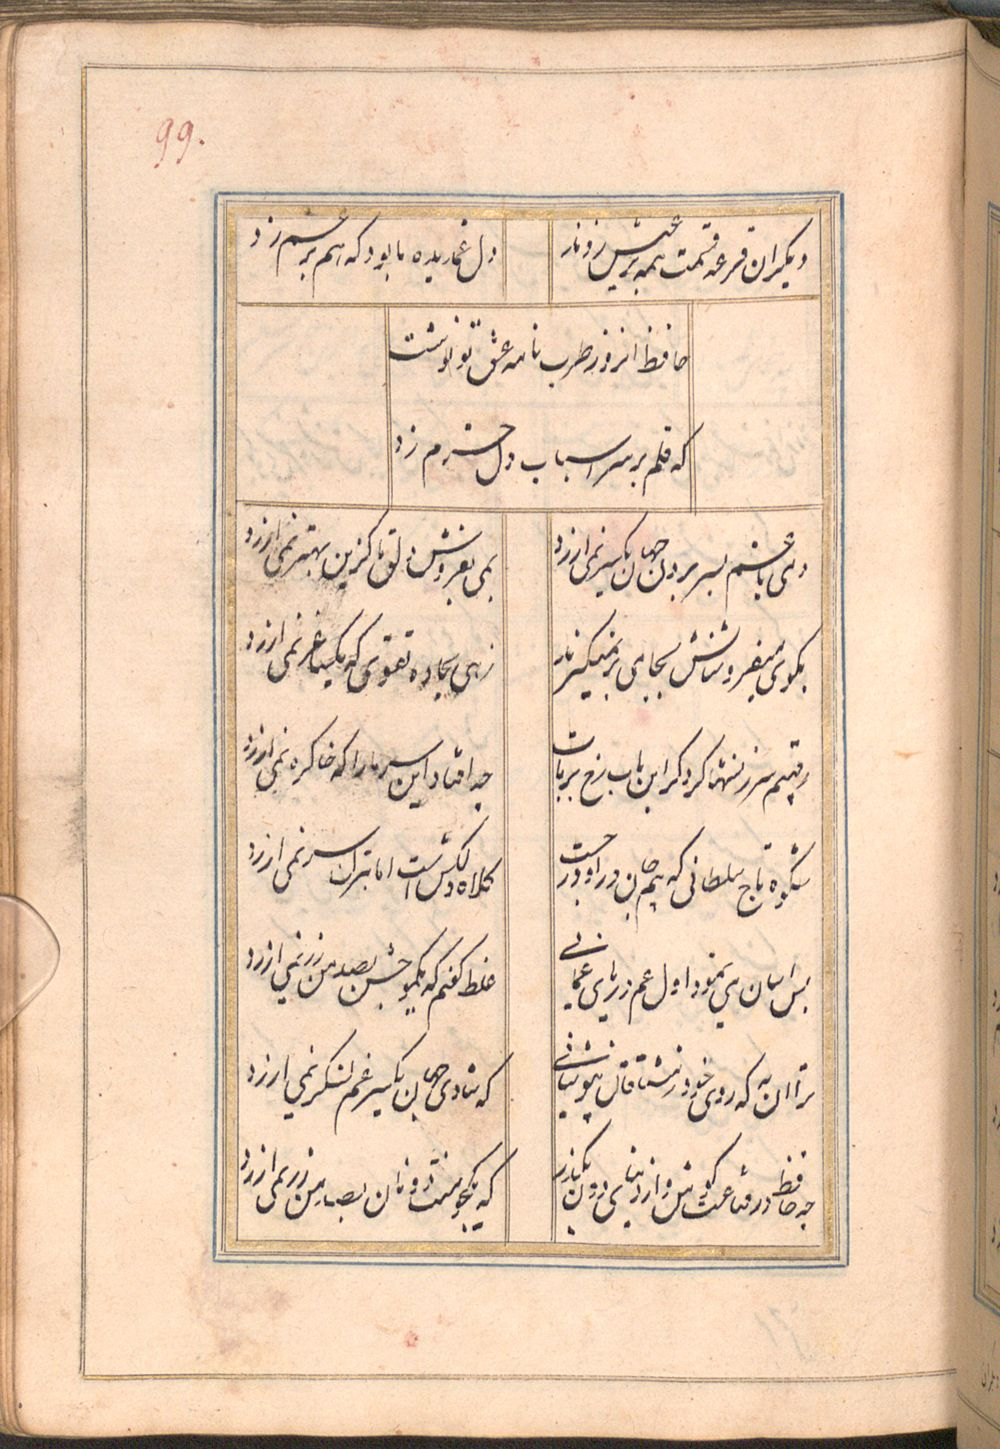 99.
دیکران قرعه قسمت همه بر عیش زدند
دل غمدیده ما بود که هم بر غم زد
حافظ انروز طرب نامه عشق تو نوشت
که قلم بر سر اسباب دل خرم زد
دمی با غم بسر بردن جهان یکسر نمی ارزد
بمی بفروش دلق ما کزین بهتر نمی ارزد
بکوی میفروشانش بجامی بر نمیکیرند
زهی سجاده تقوی که یکساغر نمی ارزد
رقیبم سرزنشها کرد کز این باب رخ برتاب
چه افتاد این سر ما را که خاک ره نمی ارزد
شکوه تاج سلطانی که بیم جان درو درجست
کلاه دلکش است اما بترک سر نمی ارزد
بس اسان می نمود اول غم دریای عمانی
غلط کفتم که یکموجش بصد من زر نمی ارزد
ترا ان به که روی خود ز مشتاقان بپوشانی
که شادی جهان یکسر غم لشکر نمی ارزد
چه حافظ در قناعت کوش و از دنیای دون بکذر
که یکجو منت دونان بصد من زر نمی ارزد